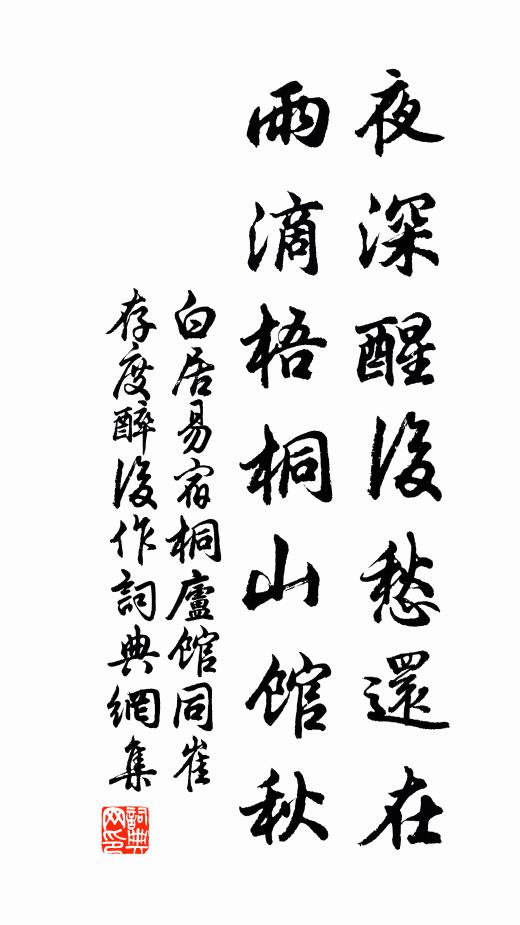 夜深醒後愁還在
雨滴梧桐山館秋
白居易宿桐廬館同崔
存度醉後作詞典網集
詞典网印